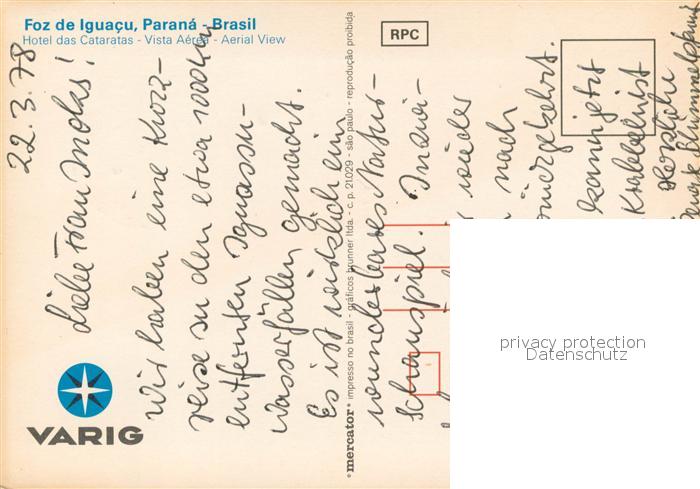 Foz de Iguaçu, Paraná - Brasil
Hotel das Cataratas - Vista Aérea - Aerial View
RPC
22.3.78
Liebe Frau
Wir haben eine Kurz-
reise zu den etwa 1000 km
entfernten Iguassu-
wasserfällen gemacht.
Es ist wirklich ein
wunderbares Natur-
schauspiel. Inzwi-
wieder
nach
zurückgekehrt.
kann jetzt
Herzliche
mercator impresso no brasil - gráficos brunner ltda. - c. p. 21029 - são paulo - reprodução proibida
VARIG
privacy protection
Datenschutz